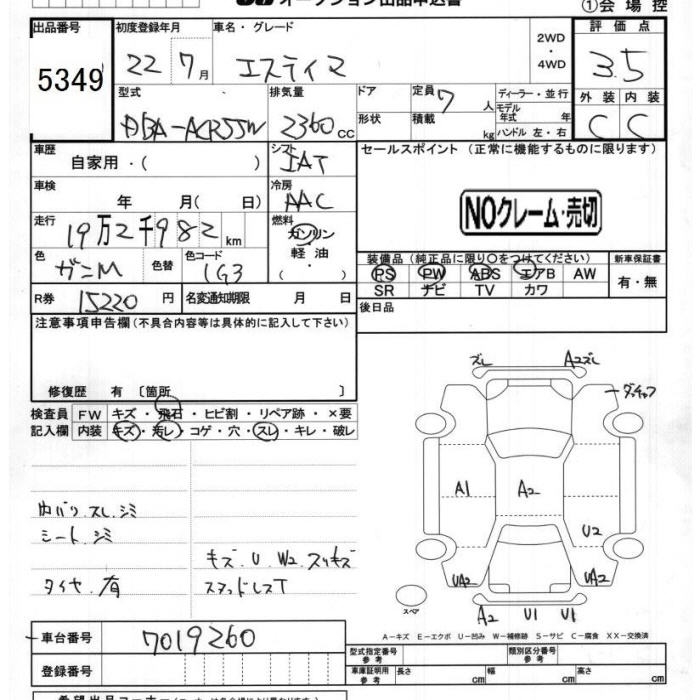 オークション出品申込書 ①会場控
出品番号 初度登録年月 車名・グレード 2WD・4WD 評価点
5349 22 7月 エスティマ 3.5
型式 排気量 ドア 定員 7人 ディーラー・並行 外装 内装
DBA-ACR55W 2360cc 形状 積載 kg モデル年式 年 ハンドル 左・右 C C
車歴 自家用・( ) シフト IAT セールスポイント (正常に機能するものに限ります)
車検 年 月( 日) 冷房 AAC NOクレーム・売切
走行 19万2千982km 燃料 ガソリン 軽油 ・( )
色 ガンM 色替 色コード 1G3 装備品 (純正品に限り○をつけてください) 新車保証書
PS PW ABS エアB AW 有・無
R券 15220円 名変通知期限 月 日 SR ナビ TV カワ
注意事項申告欄 (不具合内容等は具体的に記入して下さい) 後日品
修復歴 有 〔箇所 〕
検査員 FW キズ・飛石・ヒビ割・リペア跡・×要
記入欄 内装 キズ・汚レ・コゲ・穴・スレ・キレ・破レ
ズレ A2ズレ
A1 A2
U2
内バリ.スレ.シミ
シート.シミ
キズ.U.W2.スリキズ
タイヤ.有 スタッドレスT
UA2 UA2
スペア A2 U1 U1
A-キズ E-エクボ U-凹み W-補修跡 S-サビ C-腐食 XX-交換済
車台番号 7019260
型式指定番号 参考 類別区分番号 参考
登録番号 車庫証明用 参考 長さ cm 幅 cm 高さ cm